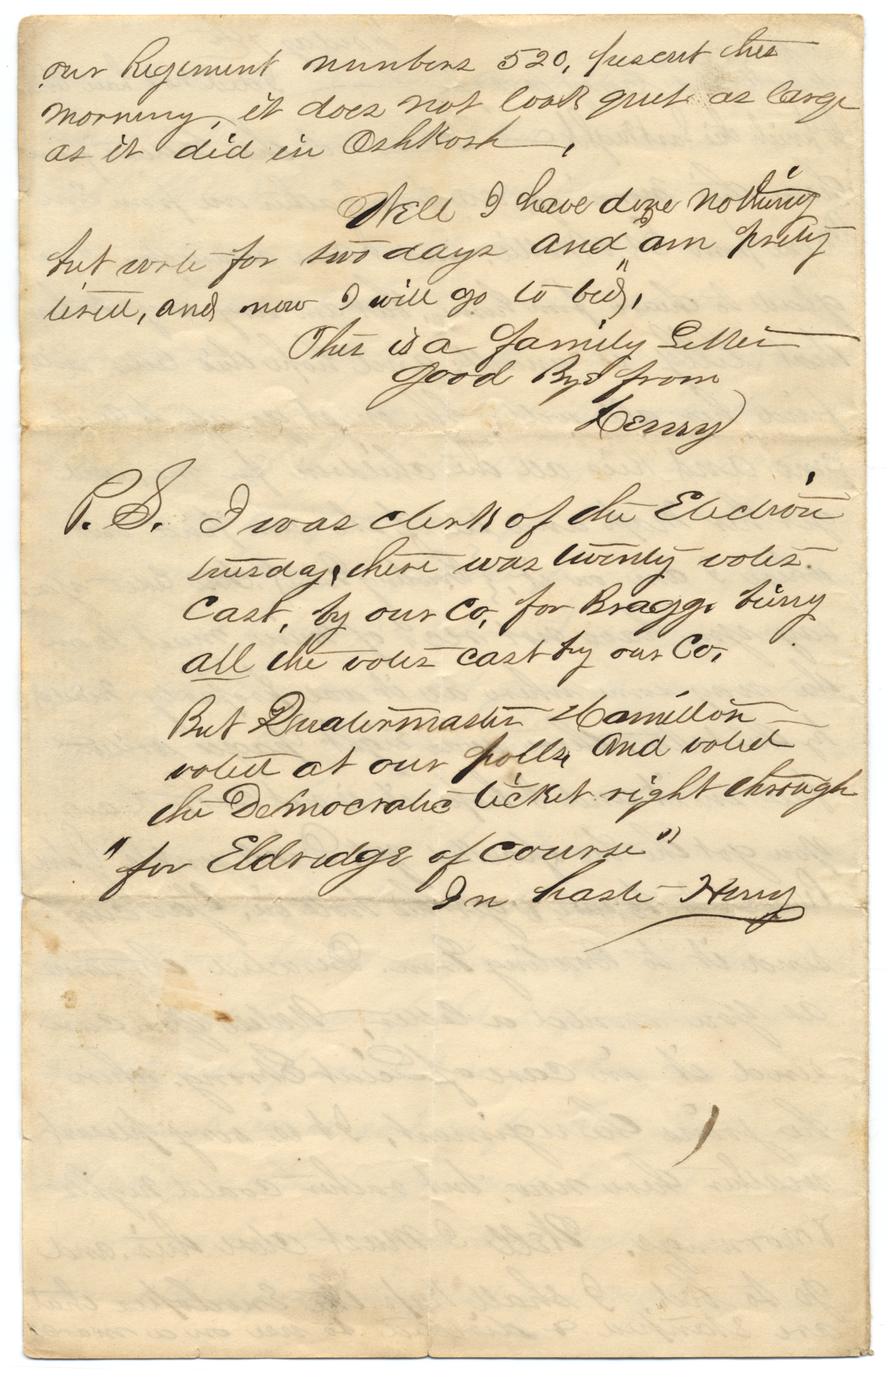 our Regiment numbers 520, present this
morning, it does not look quet as large
as it did in Oshkosh,
Well I have done nothing
but write for two days and "am prety
tired, and now I will go to bed,"
This is a family Letter
good Bye from
Henry
P. S. I was clerk of the Election
tuesday, there was twenty votes
Cast, by our Co, for Bragg. being
all the votes cast by our Co,
But Quatermaster Hamilton
voted at our polls, and voted
the Democratic ticket right through
"for Eldredge of course"
In haste Henry